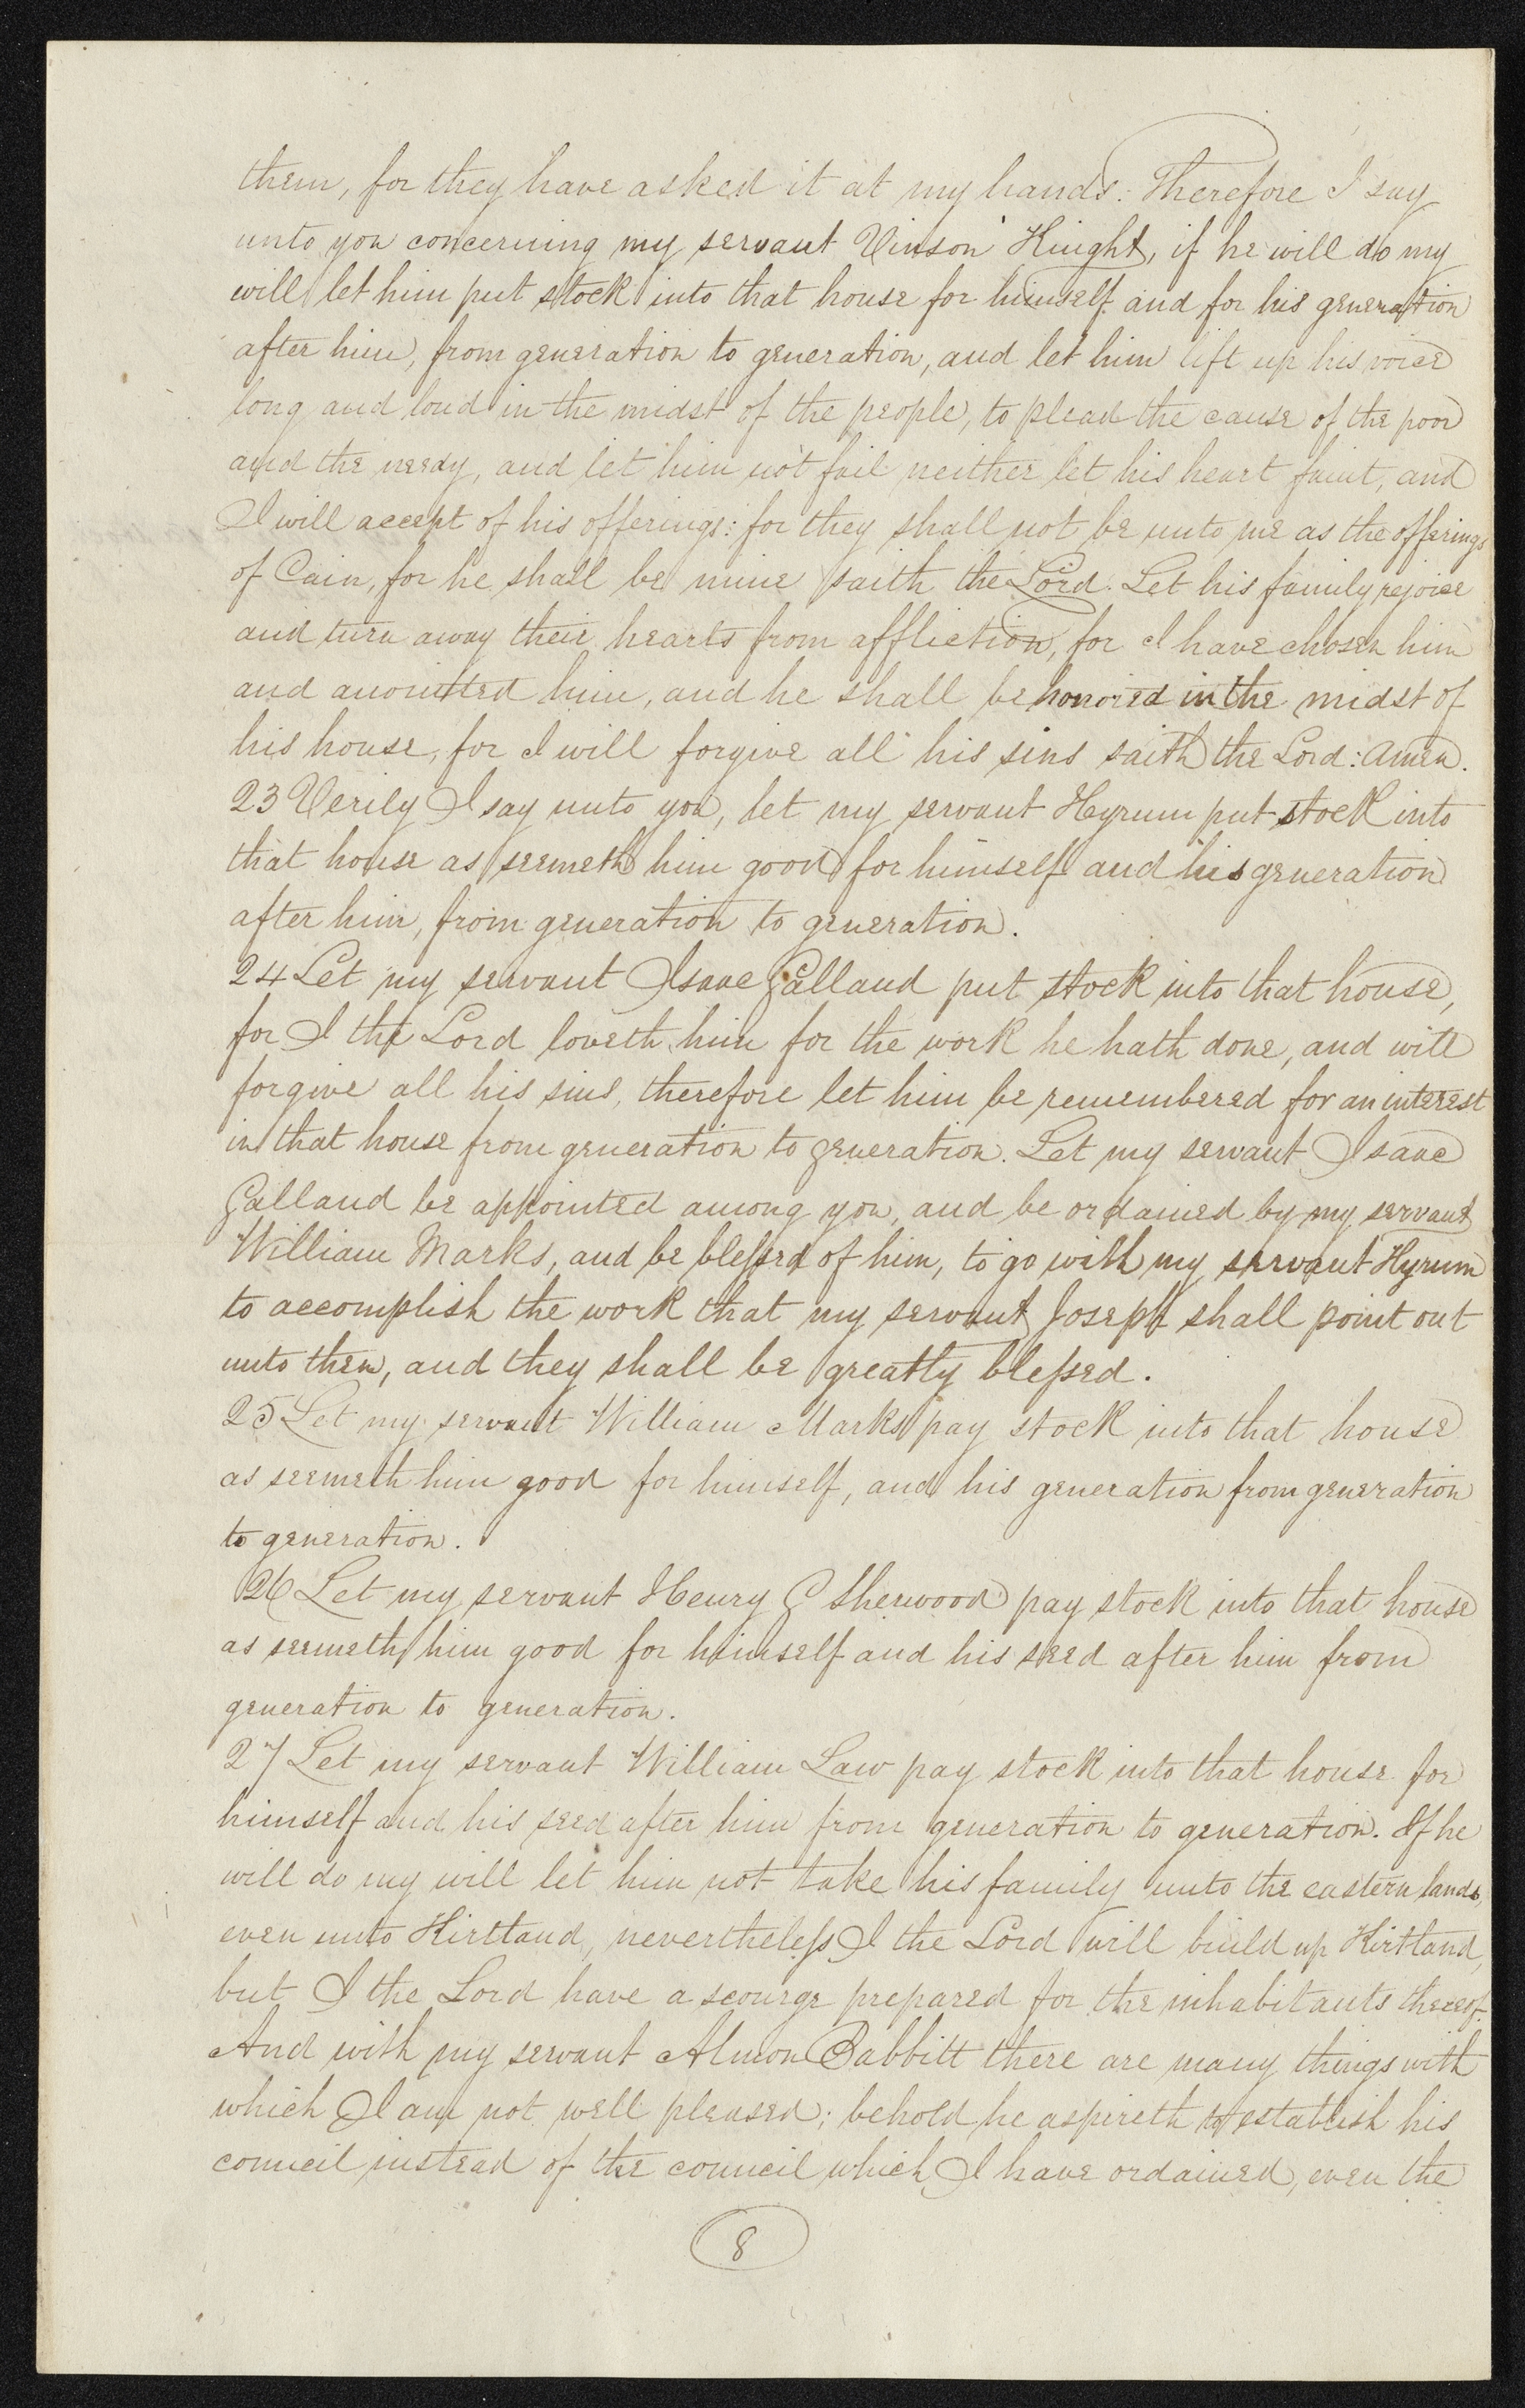 them, for they have asked it at my hands: Therefore I say
unto you concerning my servant Vinson Knight, if he will do my
will let him put stock into that house for himself and for his generation
after him, from generation to generation, and let him lift up his voice
long and loud in the midst of the people, to plead the cause of the poor
and the needy, and let him not fail neither let his heart faint, and
I will accept of his offerings: for they shall not be unto me as the offerings
of Cain, for he shall be mine saith the Lord. Let his family rejoice
and turn away their hearts from affliction, for I have chosen him
and anointed him, and he shall be honored in the midst of
his house, for I will forgive all his sins saith the Lord: Amen.
23 Verily I say unto you, let my servant Hyrum put stock into
that house as seemeth him good for himself and his generation
after him, from generation to generation.
24 Let my servant Isaac Galland put stock into that house,
for I the Lord loveth him for the work he hath done, and will
forgive all his sins, therefore let him be remembered for an interest
in that house from generation to generation. Let my servant Isaac
Galland be appointed among you, and be ordained by my servant
William Marks, and be blessed of him, to go with my servant Hyrum
to accomplish the work that my servant Joseph shall point out
unto them, and they shall be greatly blessed.
25 Let my servant William Marks pay stock into that house
as seemeth him good for himself, and his generation from generation
to generation.
26 Let my servant Henry G Sherwood pay stock into that house
as seemeth him good for himself and his seed after him from
generation to generation.
27 Let my servant William Law pay stock into that house for
himself and his seed after him from generation to generation. If he
will do my will let him not take his family unto the eastern lands,
even unto Kirtland, nevertheless I the Lord will build up Kirtland,
but I the Lord have a scourge prepared for the inhabitants thereof.
And with my servant Almon Babbitt there are many things with
which I am not well pleased; behold he aspireth to establish his
council instead of the council which I have ordained, even the
8